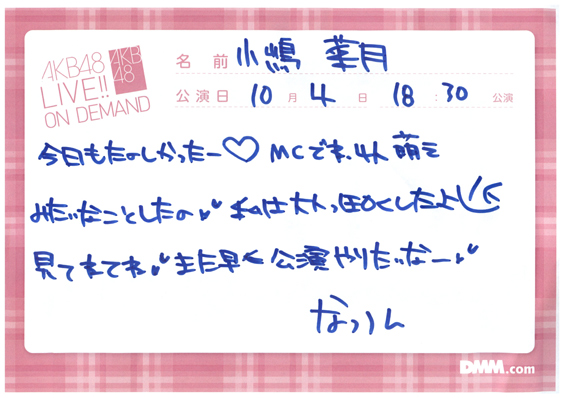 AKB48
LIVE!!
ON DEMAND
AKB
48
名前 小嶋 菜月
公演日 10月 4日 18:30公演
今日もたのしかったー♡ MCでね、4人 萌え
みたいなことしたの 私は大人っぽくしたよ
見てねてね また早く公演やりたいなー
なっつん
DMM.com